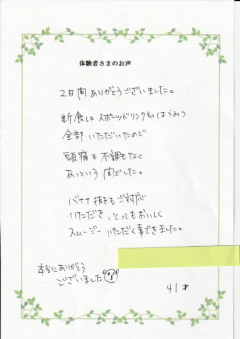 体験者さまのお声
2日間ありがとうございました。
断食はスポーツドリンク&はちみつ
全部いただいたので
頭痛も不調もなく
あっという間でした。
バナナ抜きもご対応
いただき、とってもおいしく
スムージーいただく事できました。
本当にありがとう
ございました
41才